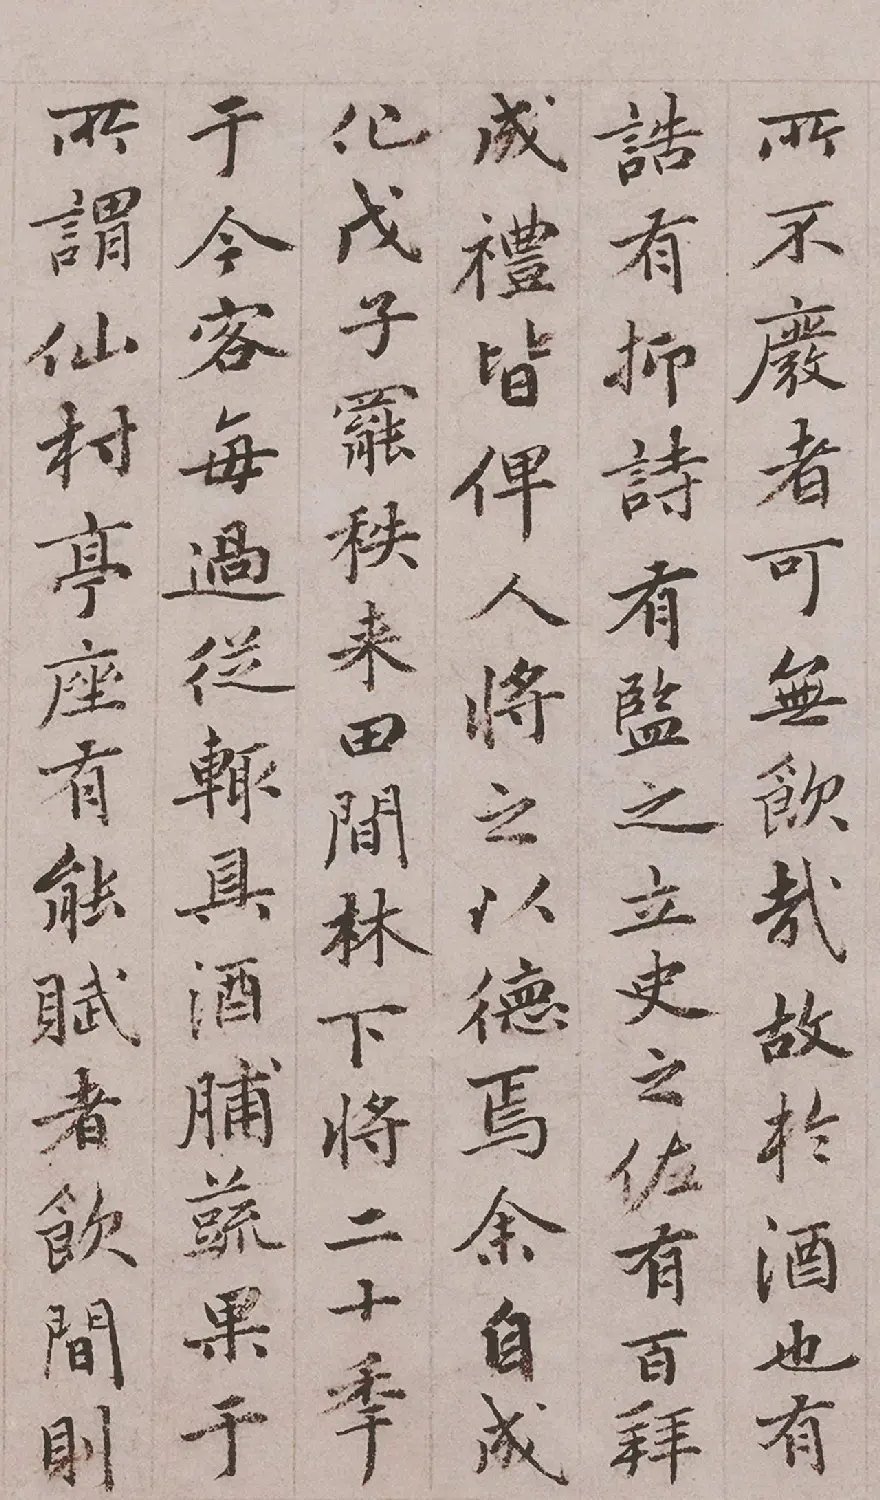 所不廢者可無飲哉故於酒也有
誥有抑詩有監之立史之佐有百拜
成禮皆俾人將之以德焉余自成
化戊子罷秩来田間林下將二十季
于今客每過從輒具酒脯蔬果于
所謂仙村亭座有能賦者飲間則